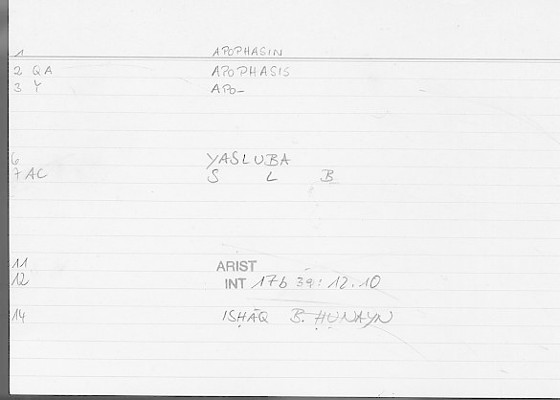 1 APOPHASIN
2 QA APOPHASIS
3 Y APO-
6 YASLUBA
7 AC S L B
11 ARIST
12 INT 17b 39: 12.10
14 ISḤĀQ B. ḤUNAYN